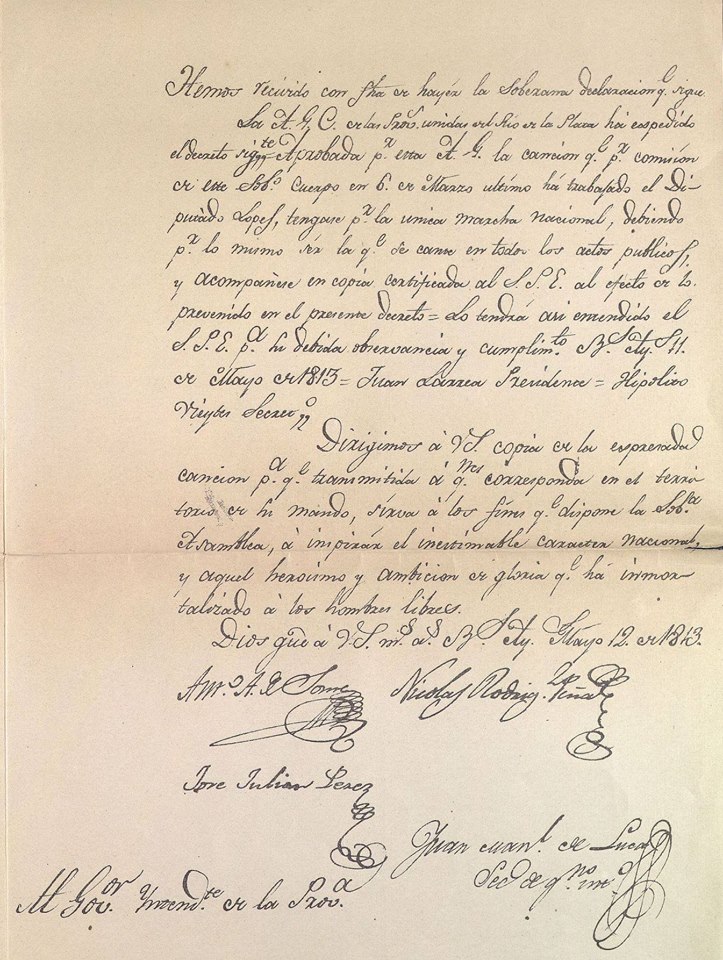 Hemos recivido con fha de hayer la Soberana declaracion q.e sigue
La A. G. C. de las Prov.s unidas del Rio de la Plata há espedido
el decreto sig.te = Aprobada p.r esta A. G. la cancion q.e p.r comision
de este Sob.o Cuerpo en 6. de Marzo ultimo há trabajado el Di-
putado Lopes, tengase p.r la unica marcha Nacional, debiendo
p.r lo mismo ser la q.e se cante en todos los actos publicos,
y acompañese en copia certificada al S. P. E. al efecto de lo
prevenido en el presente decreto = Lo tendrá asi entendido el
S. P. E. p.a su debida observancia y cumplim.to B.s Ay.s 11.
de Mayo de 1813 = Juan Larrea Presidente = Hipolito
Vieytes Secret.o
Dirigimos á V.S. copia de la espresada
cancion p.a q.e transmitida á q.nes corresponda en el terri
torio de su mando, sirva á los fines q.e dispone la Sob.na
Asamblea, á inspirár el inestimable caracter nacional,
y aquel heroismo y ambicion de gloria q.e há inmor-
talizado á los hombres libres.
Dios gûe á V.S. m.s a.s B.s Ay. Mayo 12. de 1813.
Nicolas Rodrig.z Peña
Jose Julian Perez
Juan Man.l de Luca
Sec.o de g.no int.o
Al Gov.or Yntend.te de la Prov.a